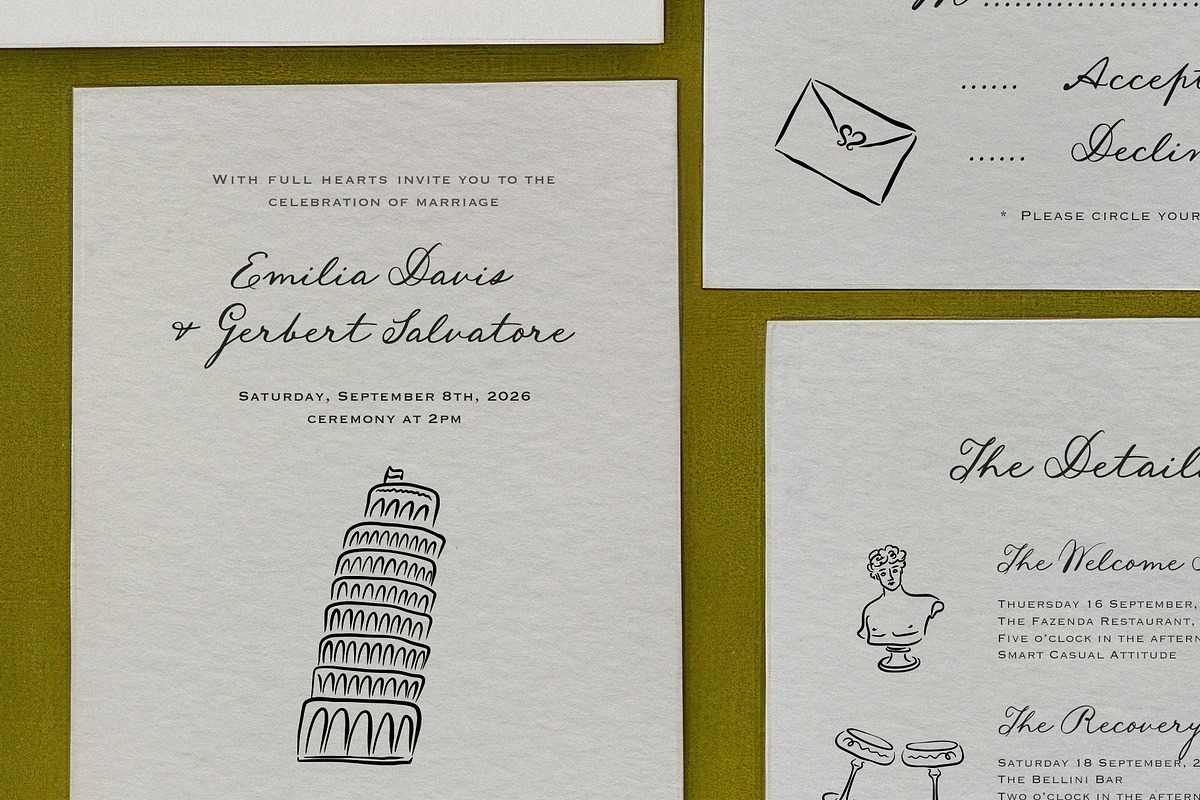 WITH FULL HEARTS INVITE YOU TO THE
CELEBRATION OF MARRIAGE
Emilia Davis
& Gerbert Salvatore
SATURDAY, SEPTEMBER 8TH, 2026
CEREMONY AT 2PM
M
...... Accept
...... Declin
* PLEASE CIRCLE YOUR
The Details
The Welcome
THUERSDAY 16 SEPTEMBER,
THE FAZENDA RESTAURANT,
FIVE O'CLOCK IN THE AFTERN
SMART CASUAL ATTITUDE
The Recovery
SATURDAY 18 SEPTEMBER, 2
THE BELLINI BAR
TWO O'CLOCK IN THE AFTERN